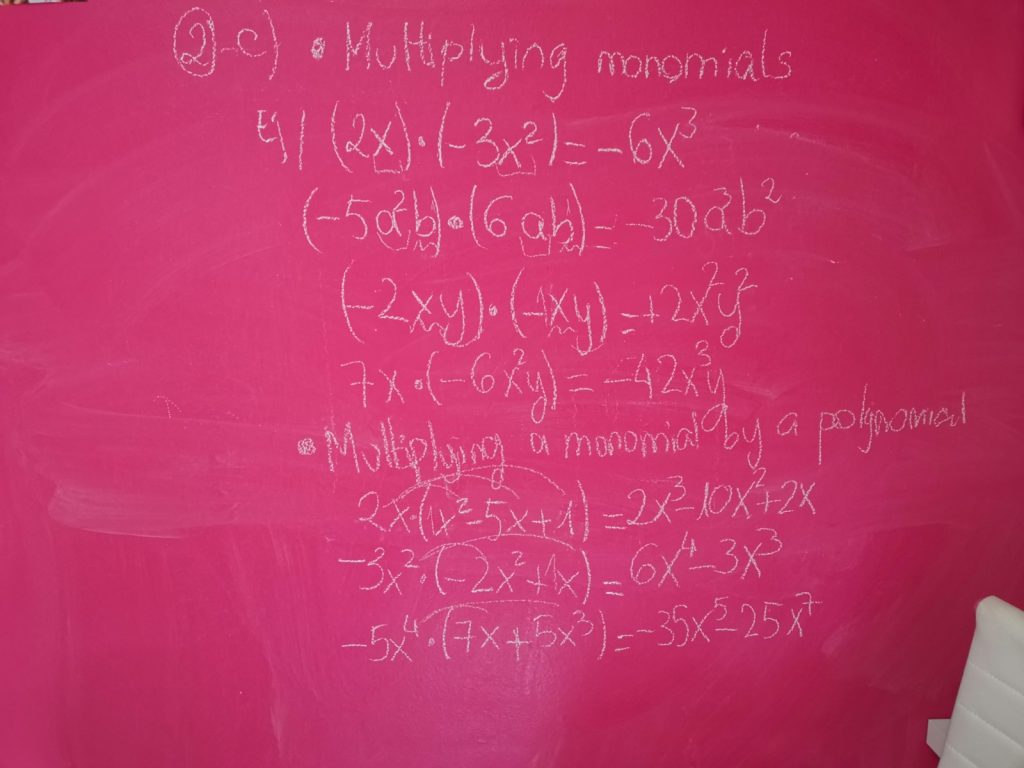 ②-c) • Multiplying monomials
Eg| (2x)·(-3x²)=-6x³
(-5a²b)•(6ab)=-30a³b²
(-2xy)•(-1xy)=+2x²y²
7x•(-6x²y)=-42x³y
• Multiplying a monomial by a polynomial
2x·(1x²-5x+1)=2x³-10x²+2x
-3x²·(-2x²+1x)=6x⁴-3x³
-5x⁴·(7x+5x³)=-35x⁵-25x⁷